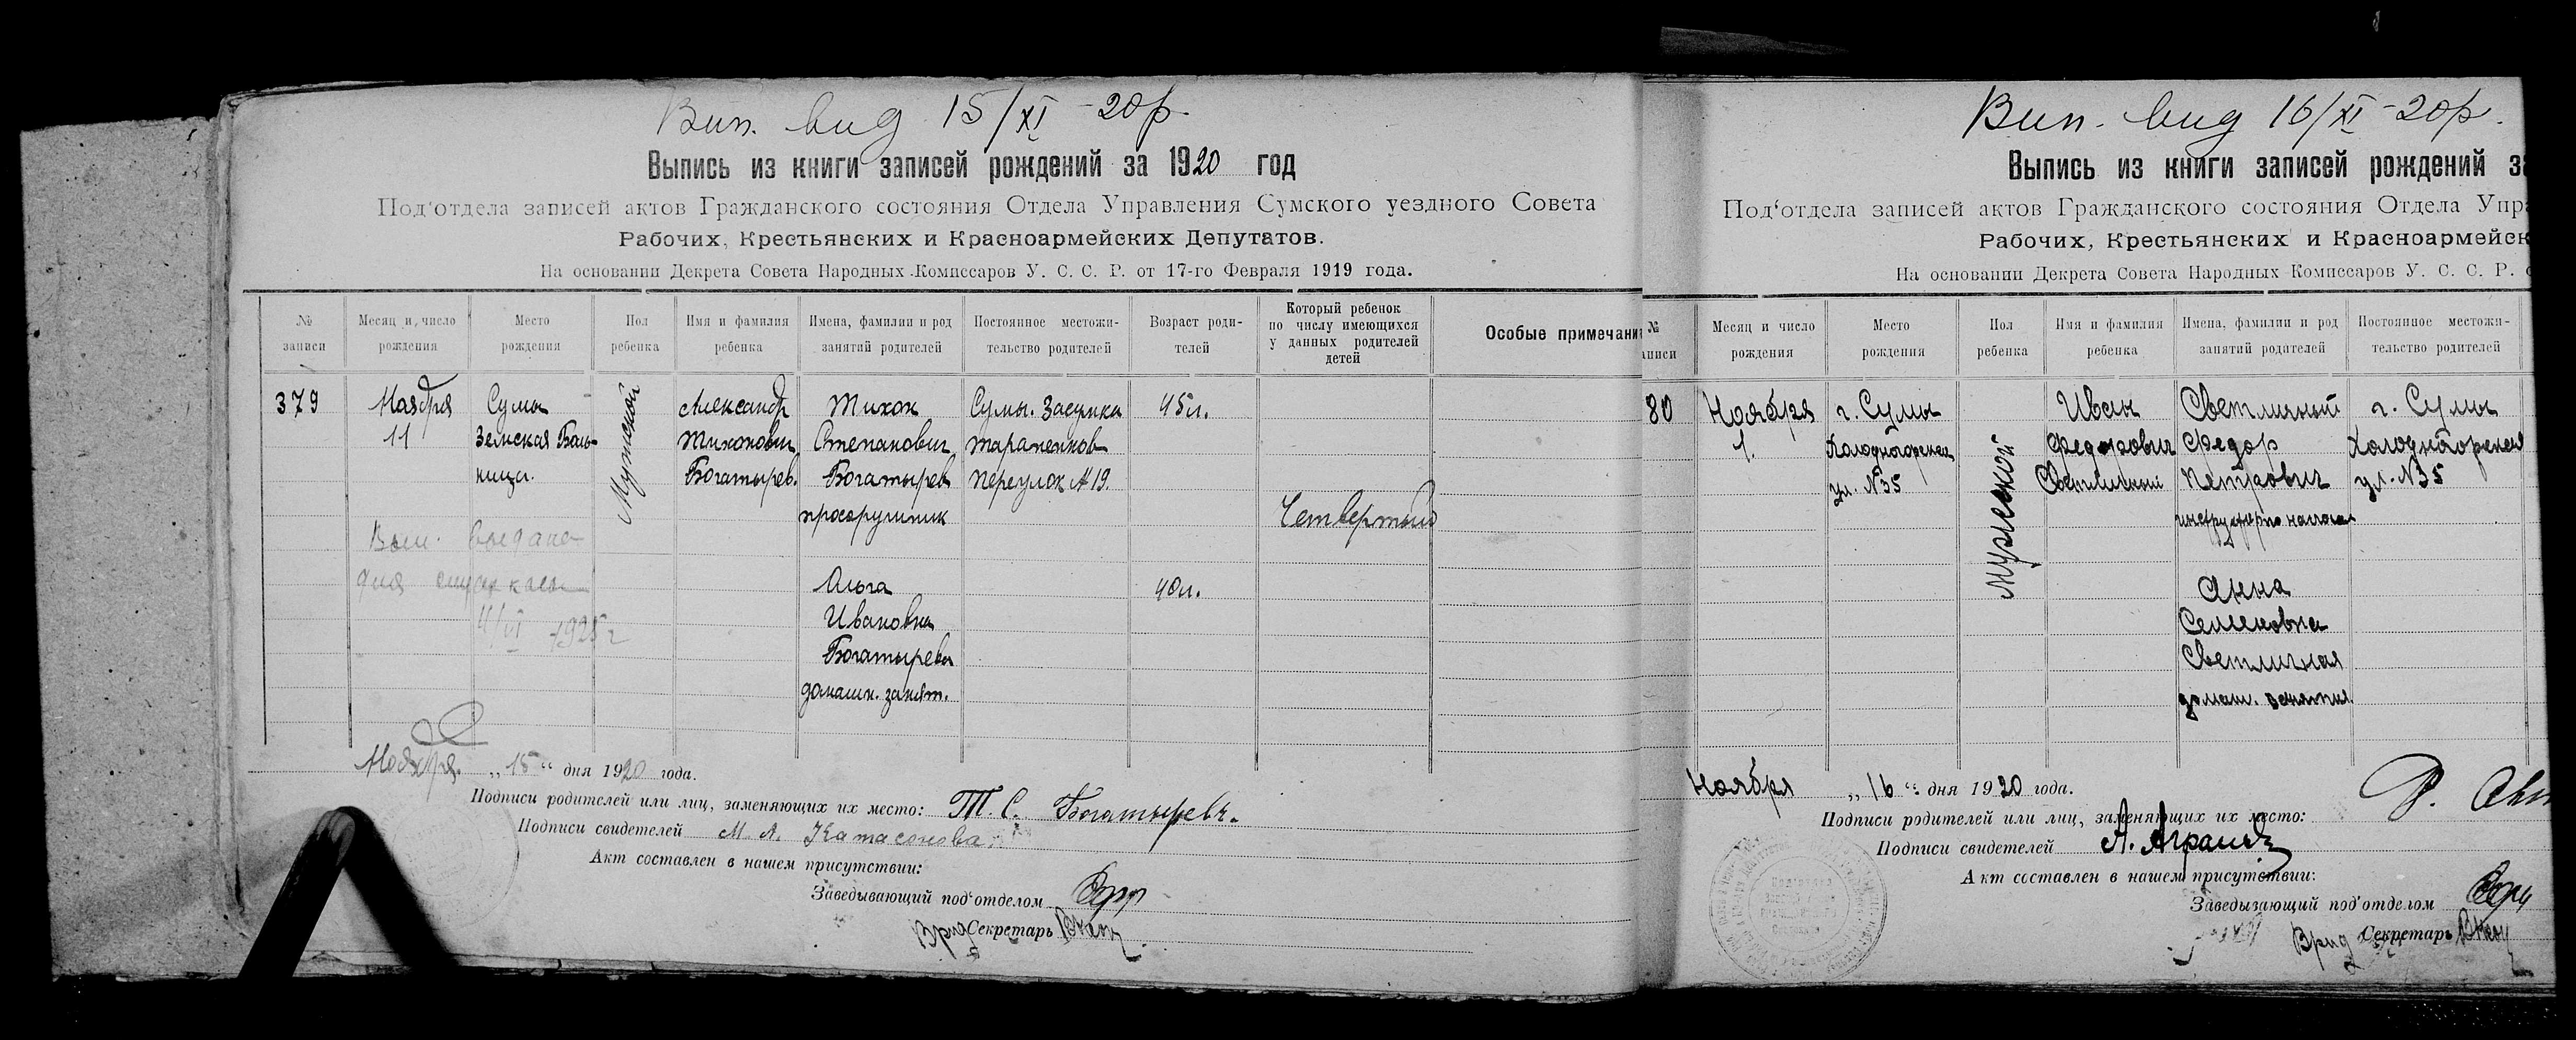 Вип. вид 15/XI -20р.
Выпись из книги записей рождений за 1920 год
Под‘отдела записей актов Гражданского состояния Отдела Управления Сумского уездного Совета
Рабочих, Крестьянских и Красноармейских Депутатов.
На основании Декрета Совета Народных Комиссаров У. С. С. Р. от 17-го Февраля 1919 года.
№ записи
Месяц и число рождения
Место рождения
Пол ребенка
Имя и фамилия ребенка
Имена, фамилии и род занятий родителей
Постоянное местожительство родителей
Возраст родителей
Который ребенок по числу имеющихся у данных родителей детей
Особые примечани
379
Ноября
11
Сумы
Земская Боль-
ница.
Мужской
Александр
Тихонович
Богатырев.
Тихон
Степанович
Богатырев
Сумы. Засумка
переулок № 19.
45 л.
Четвертый
Ольга
Ивановна
Богатырева
домашн. занят.
40 л.
Вып. выдана
для
4/VI 1925 г
Ноября „15“ дня 1920 года.
Подписи родителей или лиц, заменяющих их место: Т. С. Богатыревъ.
Подписи свидетелей М. А. Катасонова
Акт составлен в нашем присутствии:
Заведывающий под‘отделом
Врид Секретарь
Вип. вид 16/XI -20р.
Выпись из книги записей рождений за
Под‘отдела записей актов Гражданского состояния Отдела Упра
Рабочих, Крестьянских и Красноармейск
На основании Декрета Совета Народных Комиссаров У. С. С. Р. о
№ аписи
Месяц и число рождения
Место рождения
Пол ребенка
Имя и фамилия ребенка
Имена, фамилии и род занятий родителей
Постоянное местожительство родителей
80
Ноября
1.
г. Сумы
Холодногорская
ул. №35
Мужской
Иван
Федорович
Светличный
Светличный
Федор
Петрович
г. Сумы
Холодногорская
ул. №35
Анна
Семеновна
Светличная
домаш. занятия
Ноября „16“ дня 1920 года.
Подписи родителей или лиц, заменяющих их место:
Подписи свидетелей
Акт составлен в нашем присутствии:
Заведызающий под‘отделом
Врид Секретарь